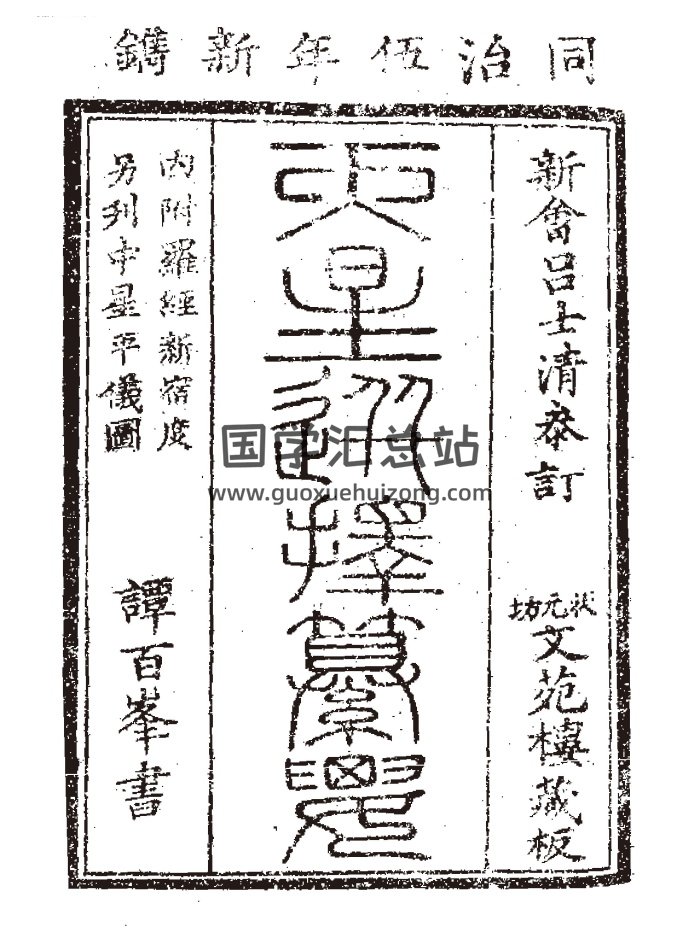 同治伍年新鐫
新會呂士清叅訂
狀元坊
文苑樓藏板
天星選擇纂要
內附羅經新宿度
另列中星平儀圖
譚百峯書
国学汇总站
www.guoxuehuizong.com